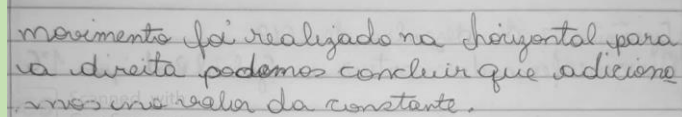 movimento foi realizado na horizontal para
a direita podemos concluir que adiciona
mos no valor da constante.